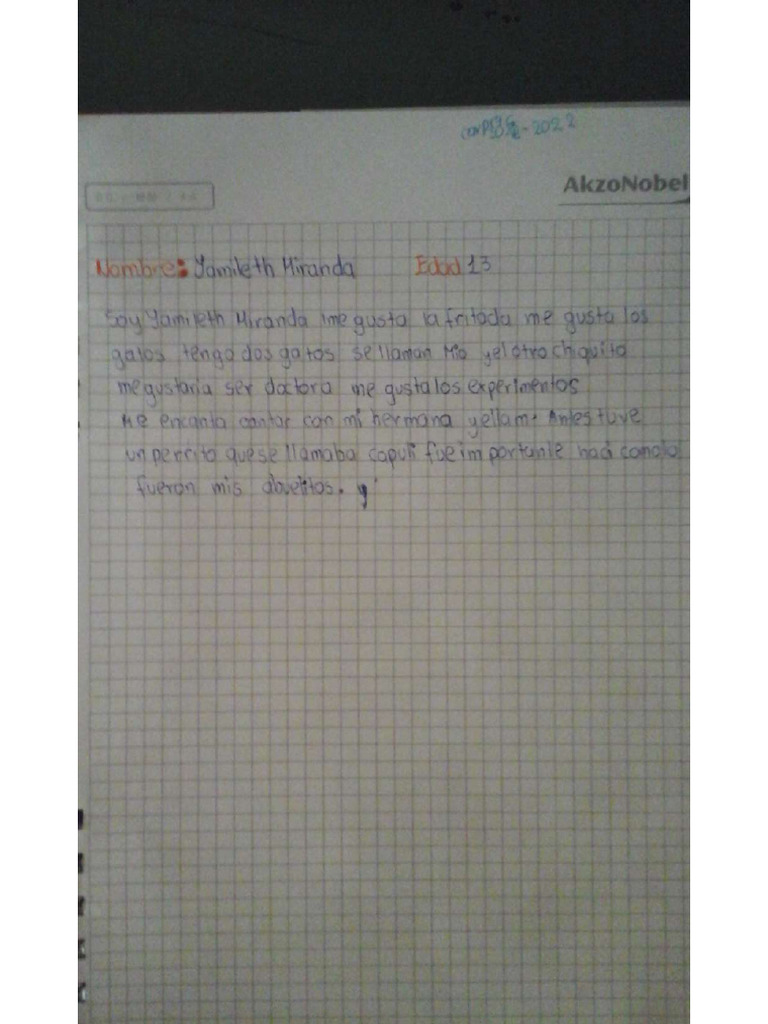 -2022
AkzoNobel
Nombre: Yamileth Miranda Edad 13
Soy Yamileth Miranda me gusta la fritada me gusta los
gatos tengo dos gatos se llaman Mio yel otro chiquito
me gustaria ser doctora me gusta los experimentos
Me encanta cantar con mi hermana yellam. Antes tuve
un perrito quese llamaba capuli fue importante haci como lo
fueron mis abuelitos. y